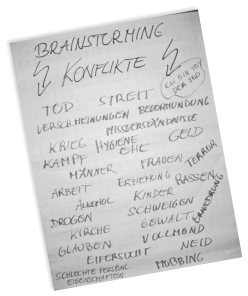 BRAINSTORMING
KONFLIKTE
ICH BIN TOT
DER TOD
TOD STREIT
VERSCHMEINUNGEN BEVORMUNDUNG
MISSVERSTÄNDNISSE
KRIEG HYGIENE GELD
KAMPF EHE
MÄNNER FRAUEN TERROR
ARBEIT ERZIEHUNG RASSEN
ALKOHOL KINDER
DROGEN SCHWEIGEN
KIRCHE GEWALT
GLAUBEN VOLLMOND
EIFERSUCHT NEID
SCHLECHTE PERSÖNL.
EIGENSCHAFTEN MOBBING